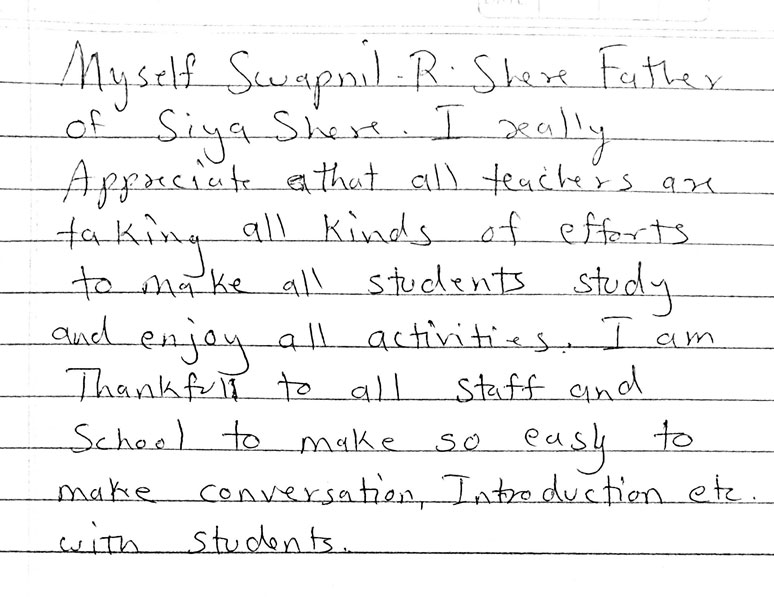 Myself Swapnil-R. Shere Father
of Siya Shere. I really
Appreciate that all teachers are
taking all kinds of efforts
to make all students study
and enjoy all activities. I am
Thankfull to all staff and
School to make so easy to
make conversation, Introduction etc.
with students.